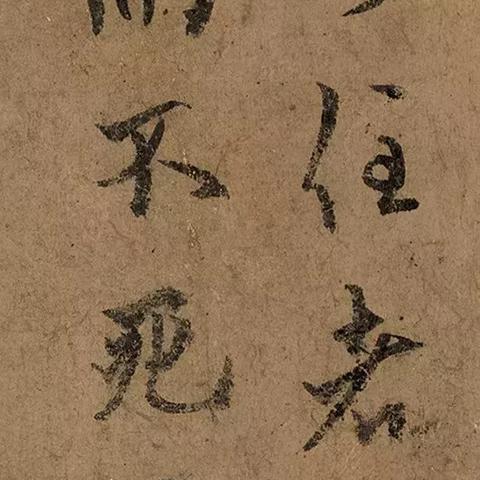 住者
不死